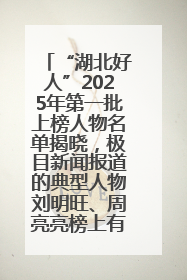 「“湖北好
人”202
5年第一批
上榜人物名
单揭晓，极
目新闻报道
的典型人物
刘明旺、周
亮亮榜上有